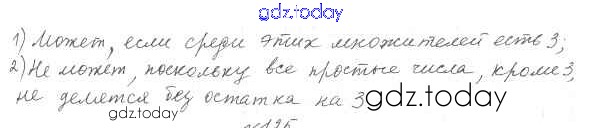 gdz.today
1) Может, если среди этих множителей есть 3;
2) Не может, поскольку все простые числа, кроме 3,
не делятся без остатка на 3
gdz.today